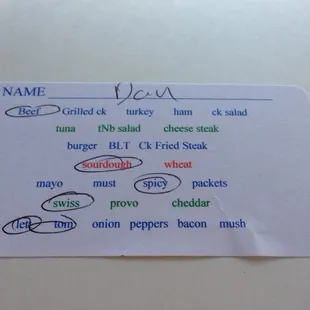 NAME Dan
Beef Grilled ck turkey ham ck salad
tuna tNb salad cheese steak
burger BLT Ck Fried Steak
sourdough wheat
mayo must spicy packets
swiss provo cheddar
let tom onion peppers bacon mush